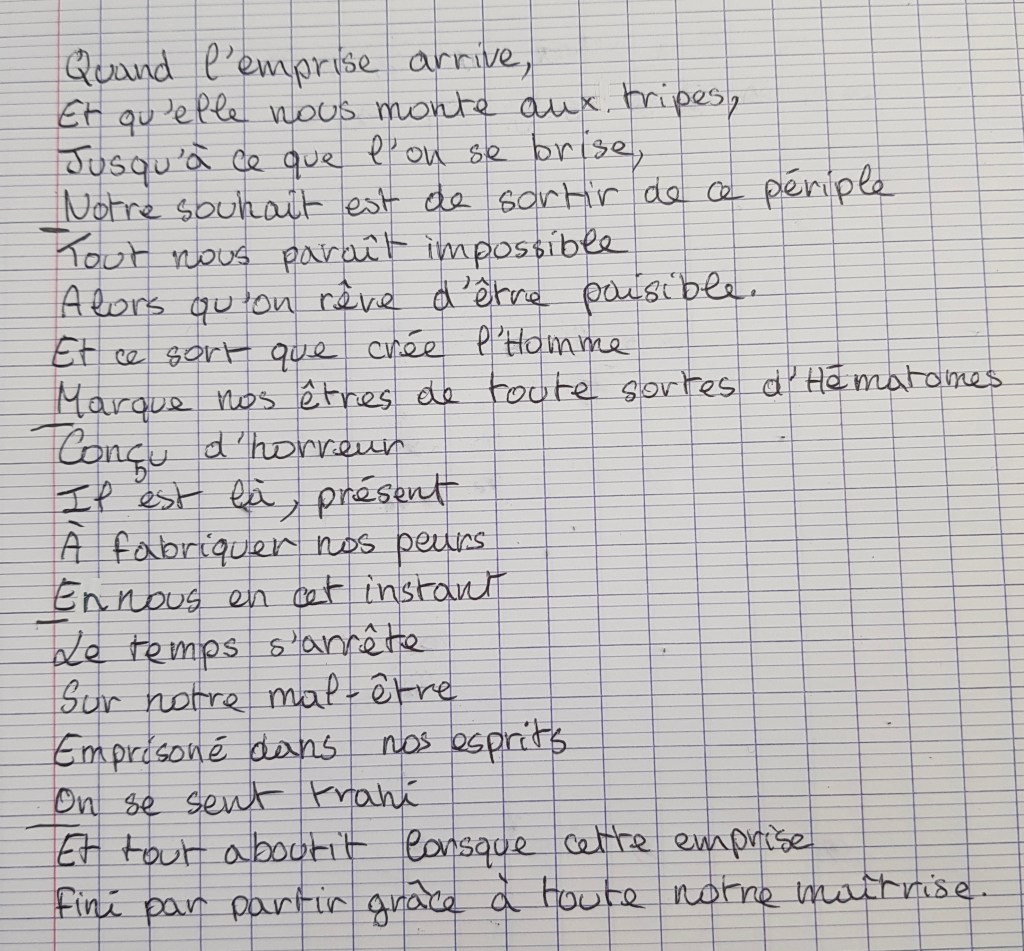 Quand l'emprise arrive,
Et qu'elle nous monte aux tripes,
Jusqu'à ce que l'on se brise,
Notre souhait est de sortir de ce périple
Tout nous paraît impossible
Alors qu'on rêve d'être paisible.
Et ce sort que crée l'Homme
Marque nos êtres de toute sortes d'Hématomes
Conçu d'horreur
Il est là, présent
À fabriquer nos peurs
En nous en cet instant
Le temps s'arrête
Sur notre mal-être
Emprisoné dans nos esprits
On se sent trahi
Et tout aboutit lorsque cette emprise
Fini par partir grâce à toute notre maîtrise.